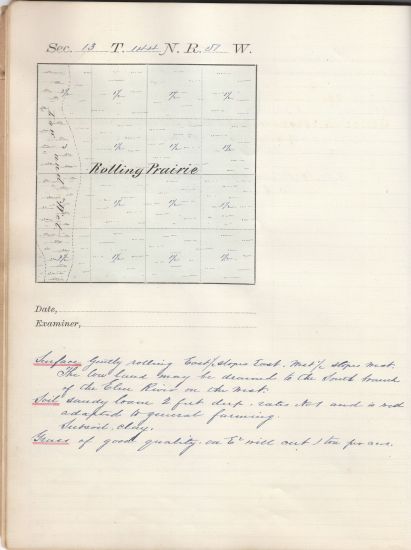 Sec. 13 T. 144 N. R. 51 W.
2/2 1/2 1/2 1/2
1/2 1/2 1/2
Low and Wet
Rolling Prairie
1/2 1/2 1/2
1/2 1/2 1/2
Date,
Examiner,
Surface Gently rolling East ½ slopes East. West ½ slopes West.
The low land may be drained to the South branch
of the Elm River on the West.
Soil sandy loam 2 feet deep. rates No 1 and is well
adapted to general farming.
Subsoil. clay.
Grass of good quality. on E½ will cut 1 ton per acre.